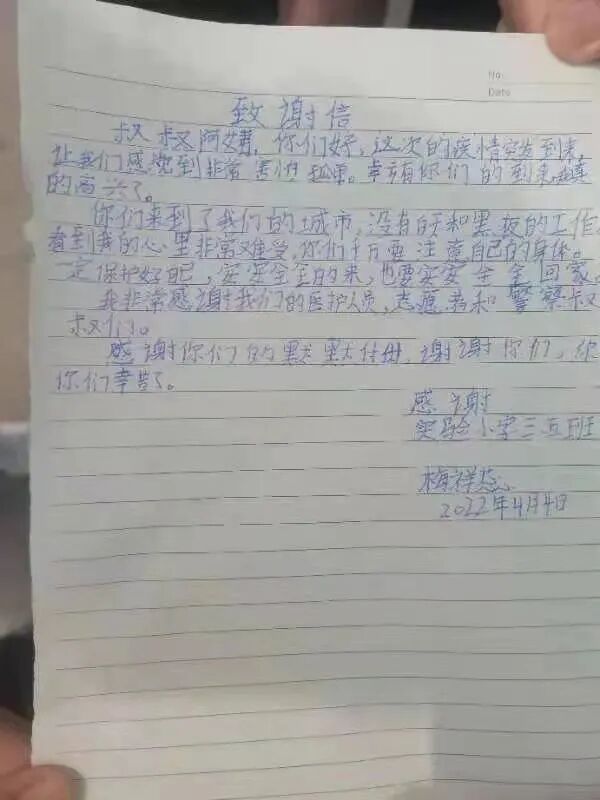 No.
Date
致谢信
叔叔阿姨,你们好,这次的疫情突发到来,
让我们感觉到非常害怕 幸有你们的到来 真
的高兴了。
你们来到了我们的城市,没有白天和黑夜的工作,
看到我的心里非常难受,你们千万要注意自己的身体。
定保护好自己,安安全全的来,也要安安全全回家。
我非常感谢我们的医护人员,志愿者和警察叔
叔们。
感谢你们的默默付出,谢谢你们,你
你们辛苦了。
感谢
实验小学三五班
梅祥蕊
2022年4月4日